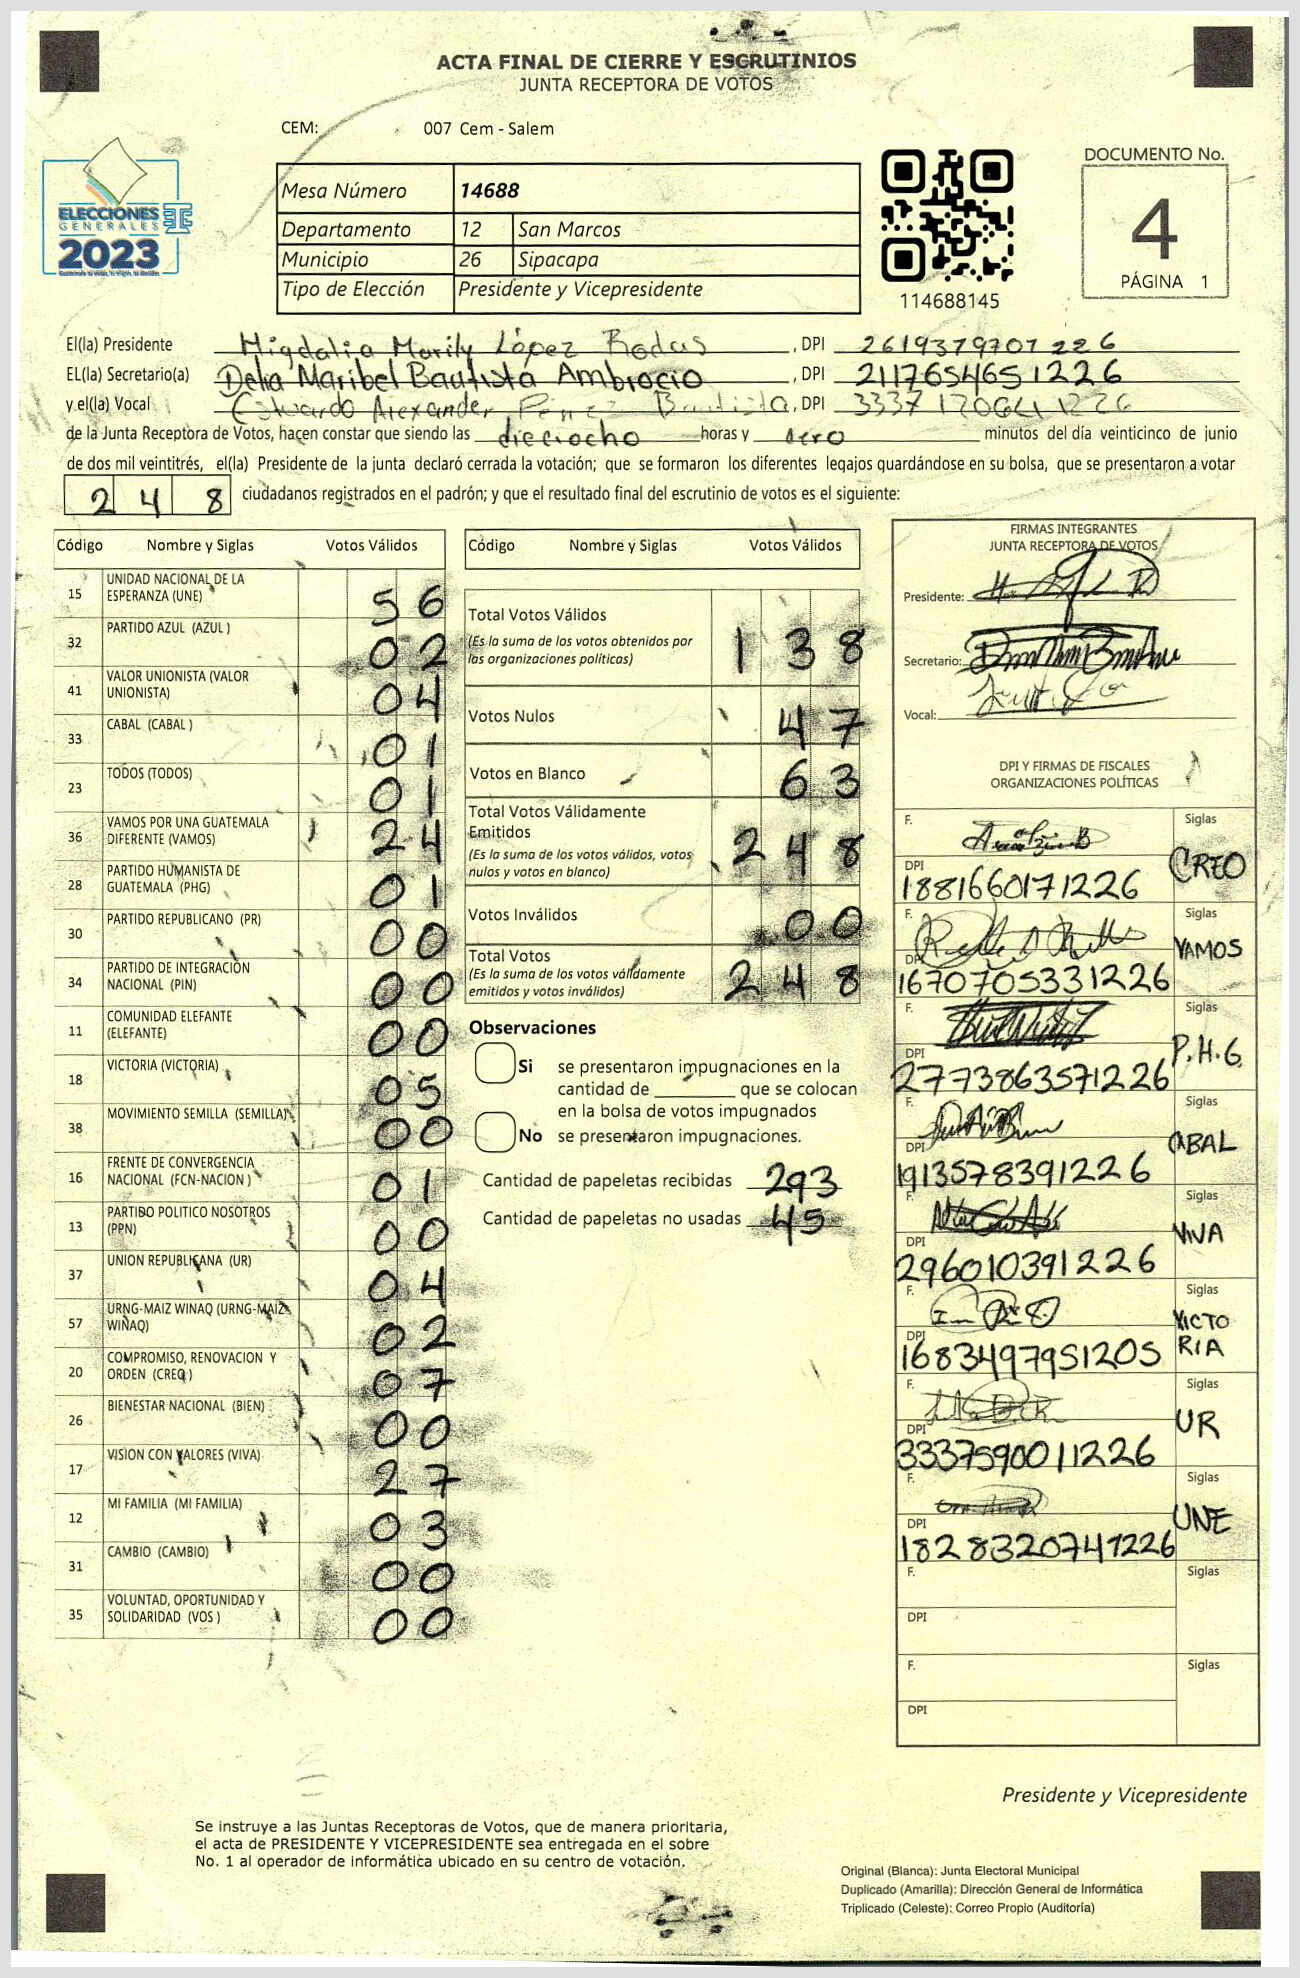 ACTA FINAL DE CIERRE Y ESCRUTINIOS
JUNTA RECEPTORA DE VOTOS
CEM: 007 Cem - Salem
ELECCIONES
GENERALES
2023
Mesa Número 14688
Departamento 12 San Marcos
Municipio 26 Sipacapa
Tipo de Elección Presidente y Vicepresidente
114688145
DOCUMENTO No.
4
PÁGINA 1
El(la) Presidente Migdalia Marily López Rodas, DPI 2619379701226
EL(la) Secretario(a) Delia Maribel Bautista Ambrocio, DPI 2117654651226
y el(la) Vocal Estuardo Alexander Pérez Bautista, DPI 3337120641226
de la Junta Receptora de Votos, hacen constar que siendo las dieciocho horas y cero minutos del día veinticinco de junio
de dos mil veintitrés, el(la) Presidente de la junta declaró cerrada la votación; que se formaron los diferentes legajos guardándose en su bolsa, que se presentaron a votar
2 4 8 ciudadanos registrados en el padrón; y que el resultado final del escrutinio de votos es el siguiente:
Código Nombre y Siglas Votos Válidos
15 UNIDAD NACIONAL DE LA ESPERANZA (UNE) 56
32 PARTIDO AZUL (AZUL ) 02
41 VALOR UNIONISTA (VALOR UNIONISTA) 04
33 CABAL (CABAL ) 01
23 TODOS (TODOS) 01
36 VAMOS POR UNA GUATEMALA DIFERENTE (VAMOS) 24
28 PARTIDO HUMANISTA DE GUATEMALA (PHG) 01
30 PARTIDO REPUBLICANO (PR) 00
34 PARTIDO DE INTEGRACIÓN NACIONAL (PIN) 00
11 COMUNIDAD ELEFANTE (ELEFANTE) 00
18 VICTORIA (VICTORIA) 05
38 MOVIMIENTO SEMILLA (SEMILLA) 00
16 FRENTE DE CONVERGENCIA NACIONAL (FCN-NACION ) 01
13 PARTIDO POLITICO NOSOTROS (PPN) 00
37 UNION REPUBLICANA (UR) 04
57 URNG-MAIZ WINAQ (URNG-MAIZ-WINAQ) 02
20 COMPROMISO, RENOVACION Y ORDEN (CREO ) 07
26 BIENESTAR NACIONAL (BIEN) 00
17 VISION CON VALORES (VIVA) 27
12 MI FAMILIA (MI FAMILIA) 03
31 CAMBIO (CAMBIO) 00
35 VOLUNTAD, OPORTUNIDAD Y SOLIDARIDAD (VOS ) 00
Código Nombre y Siglas Votos Válidos
Total Votos Válidos 138
(Es la suma de los votos obtenidos por
las organizaciones políticas)
Votos Nulos 47
Votos en Blanco 63
Total Votos Válidamente
Emitidos 248
(Es la suma de los votos válidos, votos
nulos y votos en blanco)
Votos Inválidos 00
Total Votos 248
(Es la suma de los votos válidamente
emitidos y votos inválidos)
Observaciones
Si se presentaron impugnaciones en la
cantidad de ________ que se colocan
en la bolsa de votos impugnados
No se presentaron impugnaciones.
Cantidad de papeletas recibidas 293
Cantidad de papeletas no usadas 45
FIRMAS INTEGRANTES
JUNTA RECEPTORA DE VOTOS
Presidente:
Secretario:
Vocal:
DPI Y FIRMAS DE FISCALES
ORGANIZACIONES POLÍTICAS
F. Siglas
DPI 1881660171226 CREO
F. Siglas
DPI 1670705331226 VAMOS
F. Siglas
DPI 2773863571226 P.H.G.
F. Siglas
DPI 1913578391226 CABAL
F. Siglas
DPI 296010391226 VIVA
F. Siglas
DPI 1683497951205 VICTO
RIA
F. Siglas
DPI 3337590011226 UR
F. Siglas
DPI 1828320741226 UNE
F. Siglas
DPI
F. Siglas
DPI
Presidente y Vicepresidente
Se instruye a las Juntas Receptoras de Votos, que de manera prioritaria,
el acta de PRESIDENTE Y VICEPRESIDENTE sea entregada en el sobre
No. 1 al operador de informática ubicado en su centro de votación.
Original (Blanca): Junta Electoral Municipal
Duplicado (Amarilla): Dirección General de Informática
Triplicado (Celeste): Correo Propio (Auditoría)